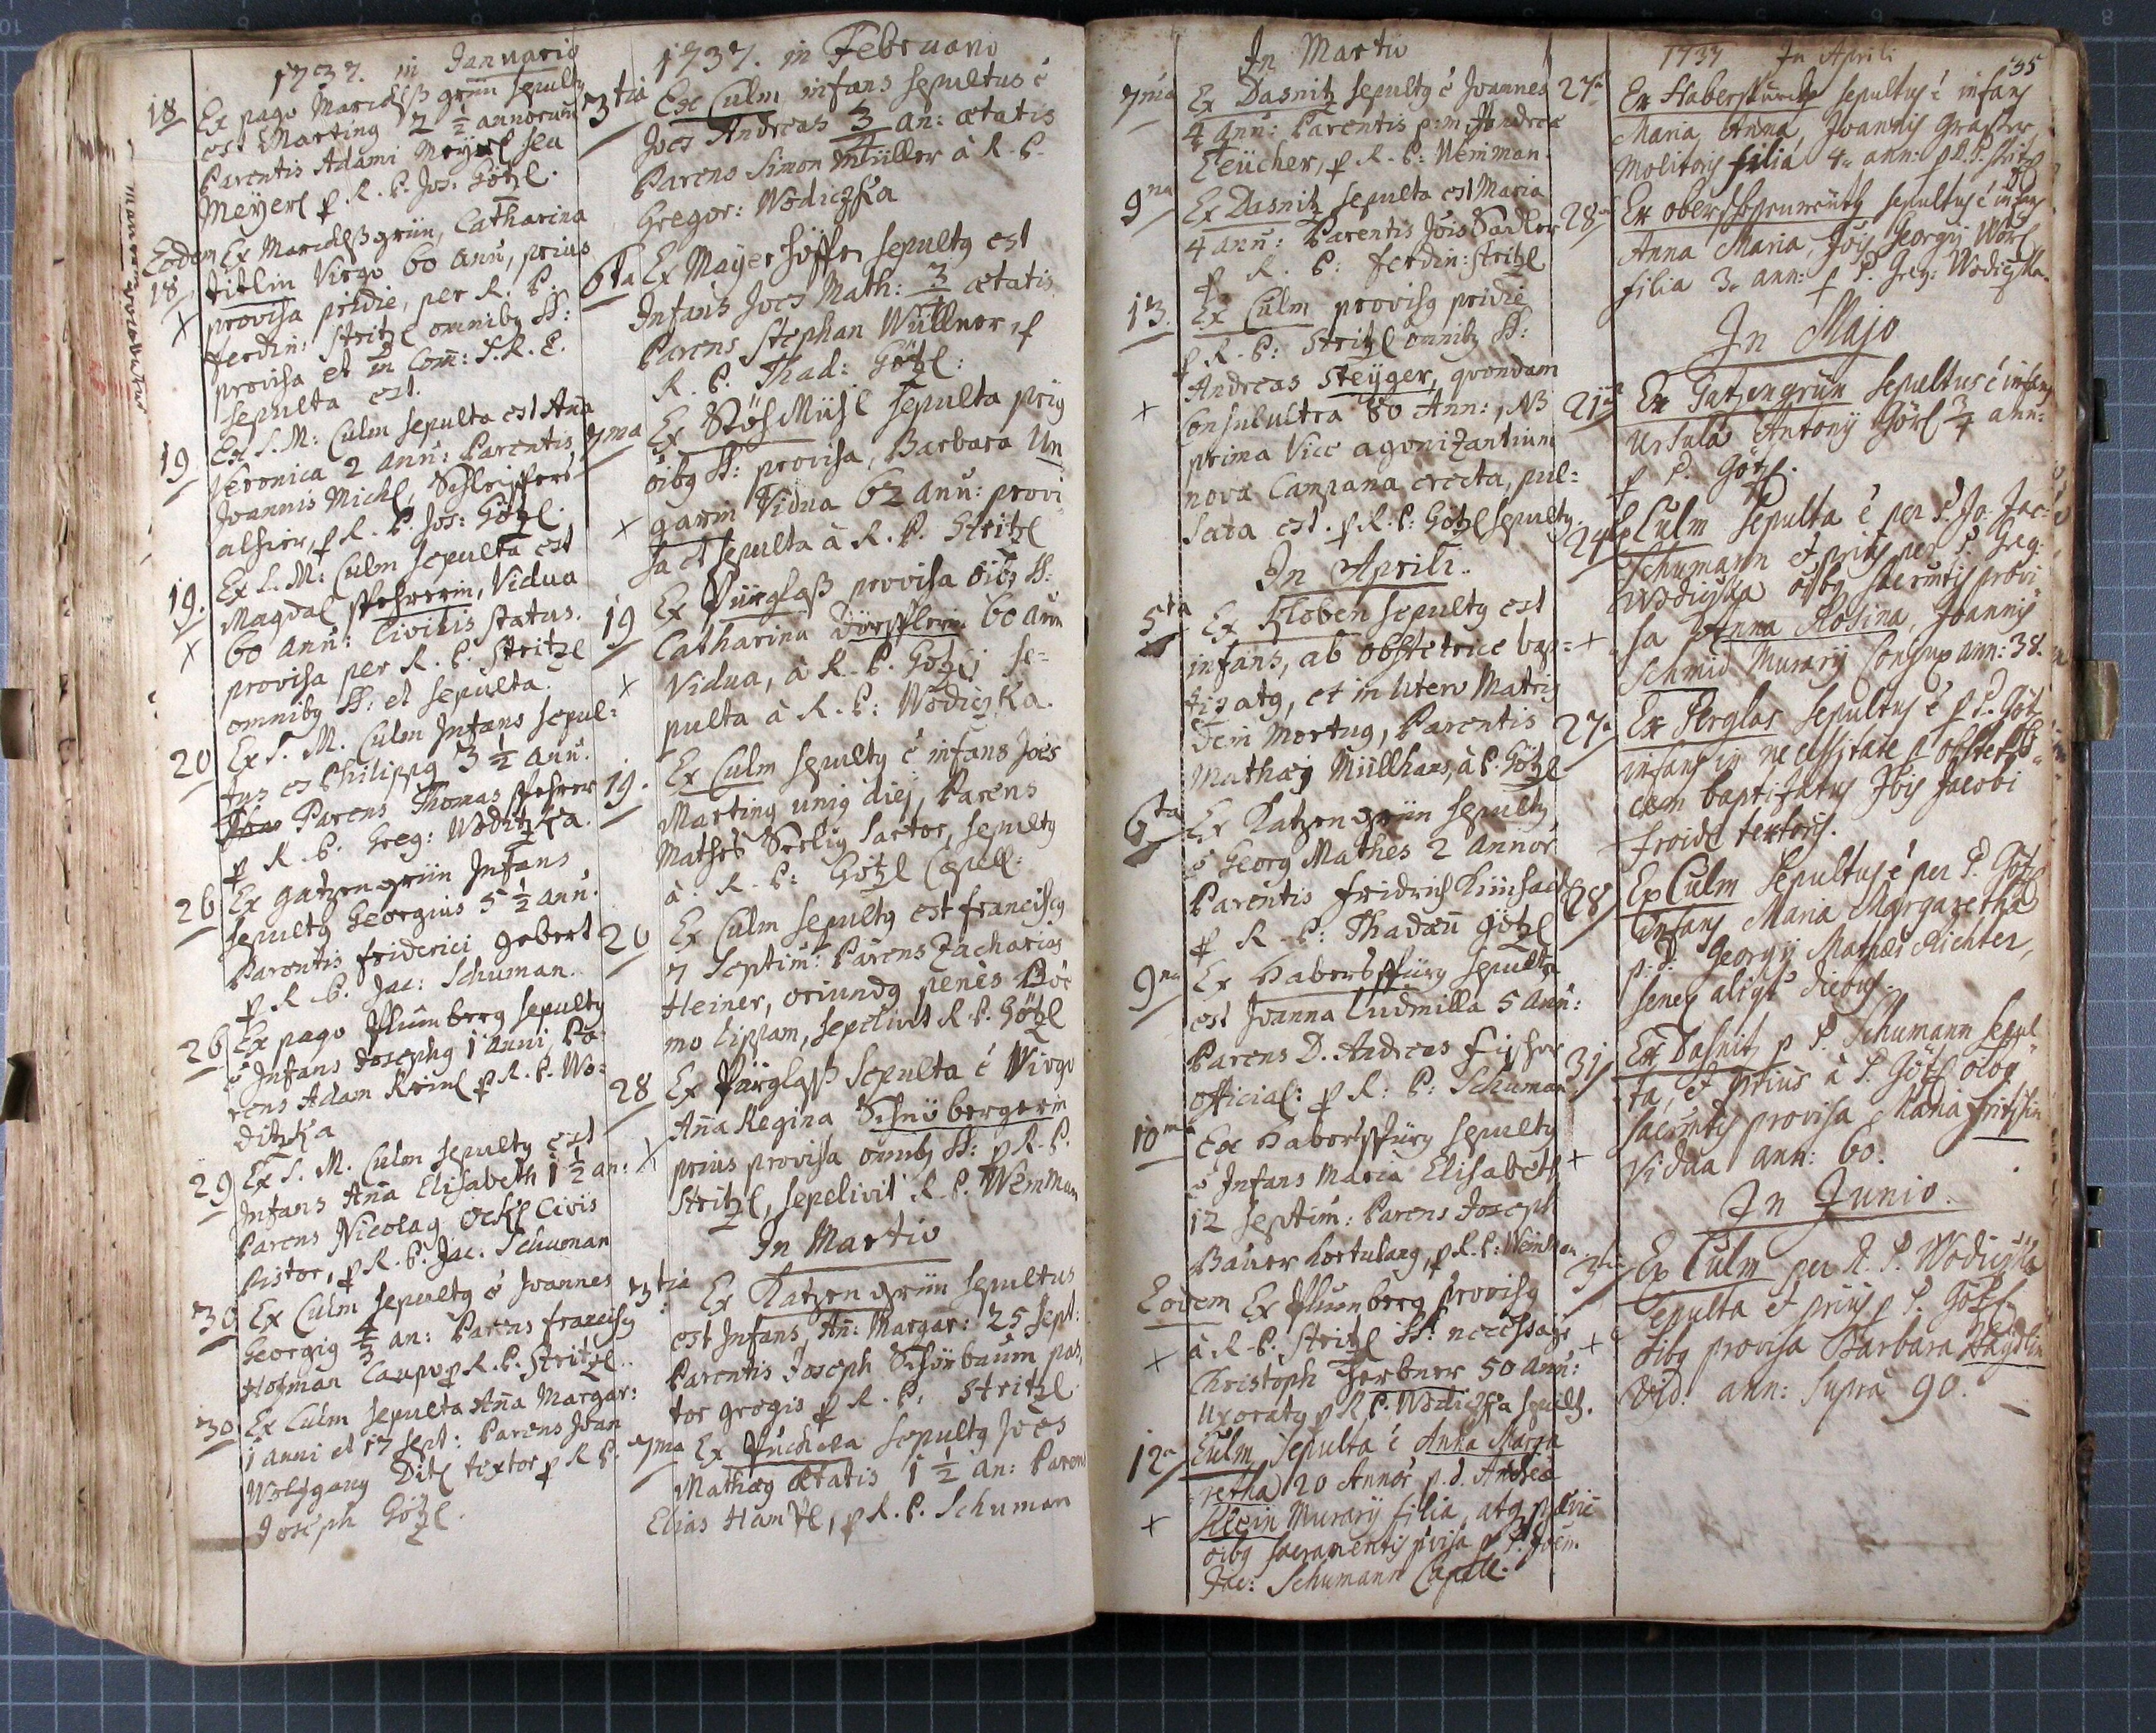 1737. in Januario
18 Ex pago Maridlßgrün sepultg
est Marting 2 ½ annorum
Parentis Adami Meyerl seu
Meyerl p R. P. Jos: Götzl.
Eodem Ex Maridlßgrün, Catharina
18 Virgo 60 anũ, prius
+ provisa pridie, per R. P.
ferdin: Stritzl omnibg SS:
provisa et in Com: S. R. E.
sepulta est.
19 Ex S. M: Culm sepulta est Aña
Veronica 2 anũ: Parentis
Joannis Michl, Schleiffers
alhier, p R. P. Jos: Götzl.
19. Ex S. M: Culm sepulta est
Magdal Vidua
+ 60 anũ: Civilis status.
provisa per R. P. Stritzl
omnibg SS: et sepulta.
20 Ex S. M. Culm Infans sepul=
tus es Philippg 3 ½ anũ.
Parens Thomas
p R. P. Greg: Woditzka.
26 Ex gatzengrün Infans
sepultg Georgius 5 ½ anũ.
Parentis friderici gebert
p R. P. Jac: Schuman.
26 Ex pago Plumberg sepultg
ẽ Infans Josephg 1 anni, Pa=
rens Adam Reinl p R. P. Wo=
ditzka
29 Ex S. M. Culm sepultg est
Infans Aña Elisabeth 1 ½ an:
Parens Nicolag Ockl Civis
Pistor, p R. P. Jac. Schuman
30 Ex Culm sepultg ẽ Joannes
Georgig 4/3 an: Parens francisg
Hofman Caupo p R. P. Stritzl.
30 Ex Culm sepulta Aña Margar:
1 anni et 17 sept: Parens Joan
Wolfgang Ditl textor p R. P.
Joseph Götzl.
1737. in Februario
3tia Ex Culm infans sepultus ẽ
Joes Andreas 3/4 an: ætatis
Parens Simon Müller à R. P.
Gregor: Wodiczka
6ta Ex Mayerhöffen sepultg est
Infans Joes Math: 3/4 ætatis
Parens Stephan Wüllner, p
R. P. Thad: Götzl:
7ma Ex StösMüsl sepulta prig
oibg SS: provisa, Barbara Un
+ garin Vidua 62 anũ: provi=
sa et sepulta à R. P. Stritzl
19 Ex Pürglaß provisa oibg SS:
Catharina Dörfflerin 60 aũn
+ Vidua, à R. P. Götzl se=
pulta à R. P: Wodiczka.
19. Ex Culm sepultg ẽ infans Joes
Marting unig diej, Parens
Mathes Serlig Sartor, sepultg
à. R. P: Götzl Capell.
20 Ex Culm sepultg est francisg
7 Septim: Parens Zacharias
Heiner, oriundg penès Böe
mo Lippam, sepelivit R. P. Götzl
28 Ex Pürglaß sepulta ẽ Virgo
Aña Regina Schnöbergerin
+ prius provisa omnibg SS: p R. P.
Stritzl, sepelivit R. P. Weinman
In Martio
3tia Ex Katzengrün sepultus
est Infans, Añ: Margar: 25 sept:
Parentis Joseph Schönbaum pas,
tor gregis p R. P: Stritzl
7ma Ex sepultg Joes
Mathæg ætatis 1 ½ an: Parens
Elias Hampl, p R. P. Schuman
In Martio
7ma Ex Dasnitz sepultg ẽ Joannes
4 anũ: Parentis p: m: Andreæ
Teücher, p R. P: Weinman.
9na Ex Dasnitz sepulta est Maria
4 anũ: Parentis Jois Sadler
p R. P: ferdin: Stritzl
13. Ex Culm provisg pridie
p R. P: Stritzl omnibg SS:
Andreas Steÿger, qvondam
+ Consul ultra 80 Ann:, NB
prima Vice agonizantium
nova Campana erecta, pul=
sata est. p R. P: Götzl sepultg.
In Aprili.
5ta Ex Kloben sepultg est
infans, ab obstetrice bap=
tizatg, et in utero Matris
Dein Mortug, Parentis
Mathæg Müllhans, à P. Götzl
6ta Ex Katzengrün sepultg
ẽ Georg Mathes 2 annor
Parentis fridrich
p R. P: Thadæũ Götzl
9na Ex Habersspürg sepulta
est Joanna Ludmilla 5 anũ:
Parens D. Andreas Fischer
official: p R: P: Schuman
10ma Ex Habersspürg sepultg
ẽ Infans Maria Elisabeth
12 Septim: Parens Joseph
Baüer hortulang, p R. P: Weinman
Eodem Ex Plumberg provisg
à R. P. Stritzl SS: necessarijs
+ Christoph Herbner 50 anũ:
Uxoratg p R P. Wodiczka sepultg.
12a Culm sepulta ẽ Anna Marga
retha 20 Annor p. d. Andreæ
+ Klein Murarÿ filia, atq prævie
oibg sacramentis pvisa p P. Joem.
Jac: Schumann Capell.
1737 In Aprili
35
27a Ex Haberspürg sepultus ẽ infans
Maria Anna, Joannis
Molitoris filia 4 ann: p R. P. Stritzl
28a Ex sepultus ẽ infans
Anna Maria, Jois Georgÿ Wörl
filia 3 ann: p P. Greg: Wodiczka.
In Majo
21a Ex Gatzengrün sepultus ẽ infans
Ursula Antonÿ Görl 3/4 ann:
p P. Götzl.
24a Ex Culm sepulta ẽ per P. Jo. Jac:
Schumann et prius per P. Greg:
Wodiczka oibg sacrmtis provi
+ sa Anna Rosina, Joannis
Schmid Murarÿ Conjunx ann: 38.
27a Ex Perglas sepultus ẽ p P. Götzl
infans in necessitate p obstetri=
cem baptizatus Jois Jacobi
froidl textoris.
28 Ex Culm sepultus ẽ per P. Götzl
infans Maria Margaretha
p. d. Georgÿ Mathæi Richter,
senex aliqt diebus.
31 Ex Dasnitz p P. Schumann sepul=
ta, et prius à P. Götzl oibg
sacrmtis provisa Maria fritschin
+ Vidua ann: 60.
In Junio.
3a Ex Culm per R. P. Wodiczka
sepulta et prius p P. Götzl
+ oibg provisa Barbara Haydlin
Vid. ann: supra 90.